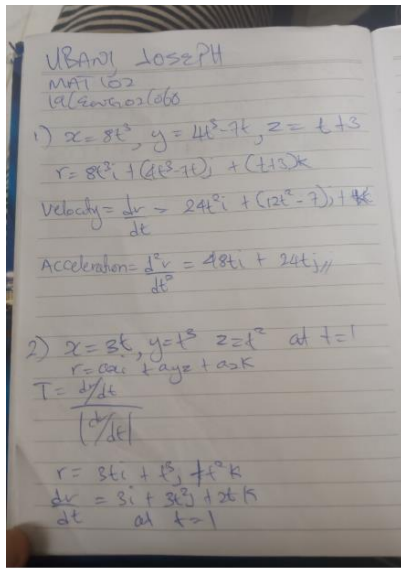 UBANI JOSEPH
MAT 102
1) x = 8t³, y = 4t³-7t, z = t+3
r = 8t³i + (4t³-7t)j + (t+3)k
Velocity = dr/dt = 24t²i + (12t²-7)j + k
Acceleration = d²r/dt² = 48ti + 24tj //
2) x = 3t, y = t³ z = t² at t=1
r = axi + ayz + azk
T = dr/dt / |dr/dt|
r = 3ti + t³j + t²k
dr/dt = 3i + 3t²j + 2tk
at t=1